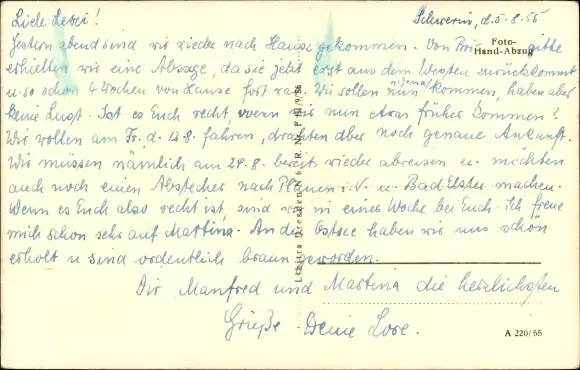 Liebe Levei! Schwerin, d. 5.8.56
Foto-
Hand-Abzug
Gestern abend sind wir wieder nach Hause gekommen. Von Brigitte
erhielten wir eine Absage, da sie jetzt erst aus dem Westen zurückkommt
u. so schon 4 Wochen von Hause fort war. Wir sollen nun kommen, haben aber
keine Lust. Ist es Euch recht, wenn wir nun etwas früher kommen?
Wir wollen am Fr. d. fahren, drahten aber noch genaue Ankunft.
Wir müssen nämlich am 24.8. bereits wieder abreisen u. möchten
auch noch einen Abstecher nach Plauen i.V. u. Bad Elster machen.
Wenn es Euch also recht ist, sind wir in einer Woche bei Euch. Ich freue
mich schon sehr auf Martina. An der Ostsee haben wir uns schön
erholt u. sind ordentlich braun geworden.
Dir Manfred und Martina die herzlichsten
Grüße Deine Lore.
A 220/55